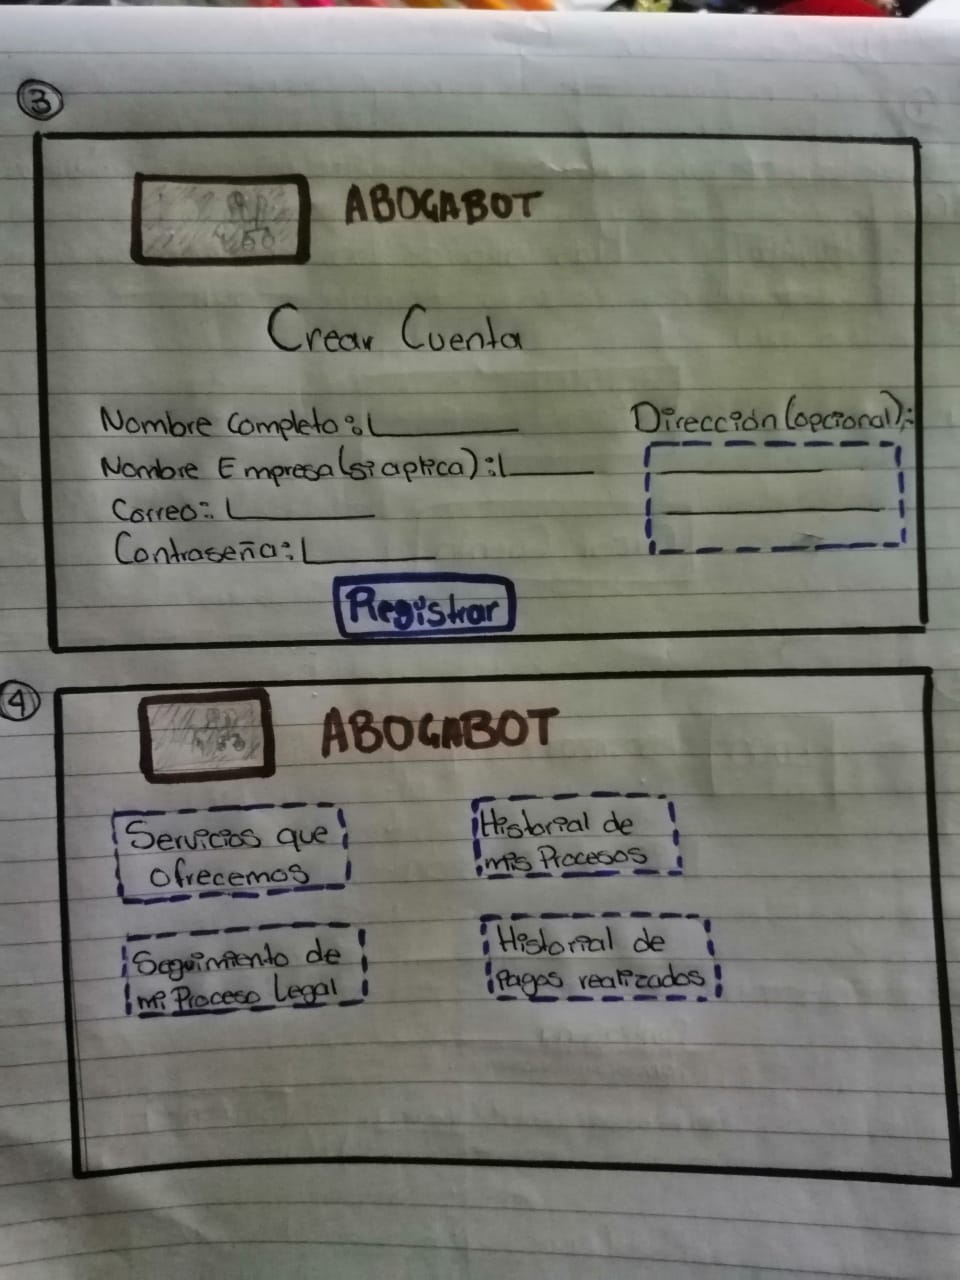 3
ABOGABOT
Crear Cuenta
Nombre Completo:
Nombre Empresa (si aplica):
Correo:
Contraseña:
Dirección (opcional):
Registrar
4
ABOGABOT
Servicios que
ofrecemos
Historial de
mis Procesos
Seguimiento de
mi Proceso Legal
Historial de
Pagos realizados